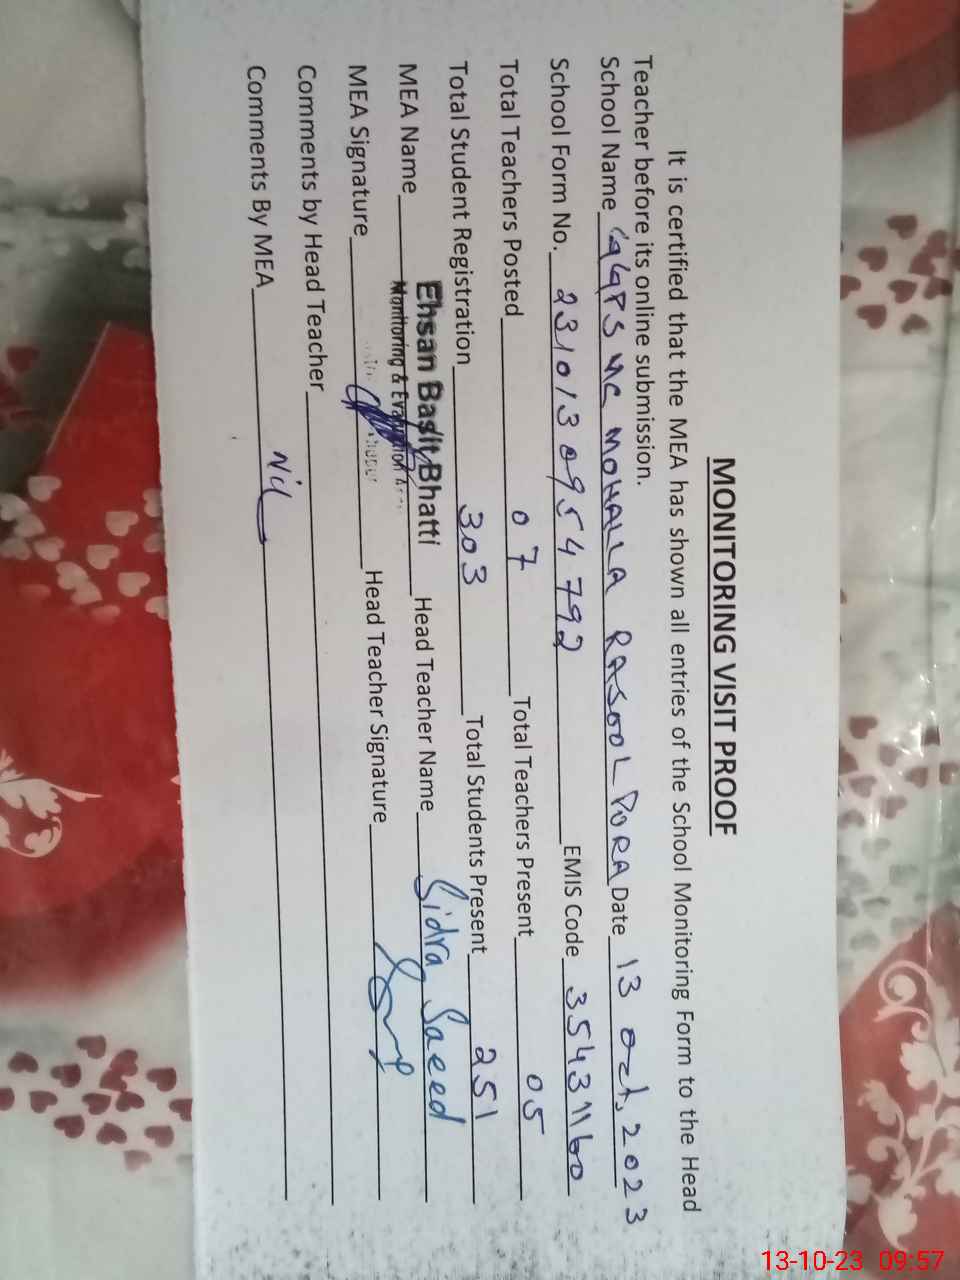 MONITORING VISIT PROOF
It is certified that the MEA has shown all entries of the School Monitoring Form to the Head
Teacher before its online submission.
School Name GGPS MC MOHALLA RASOOL PORA Date 13 Oct, 2023
School Form No. 2310130954792 EMIS Code 35431160
Total Teachers Posted 07 Total Teachers Present 05
Total Student Registration 303 Total Students Present 251
MEA Name Ehsan Basit Bhatti Head Teacher Name Sidra Saeed
Monitoring & Evaluation
MEA Signature Head Teacher Signature
Comments by Head Teacher
Comments By MEA Nil
13-10-23 09:57